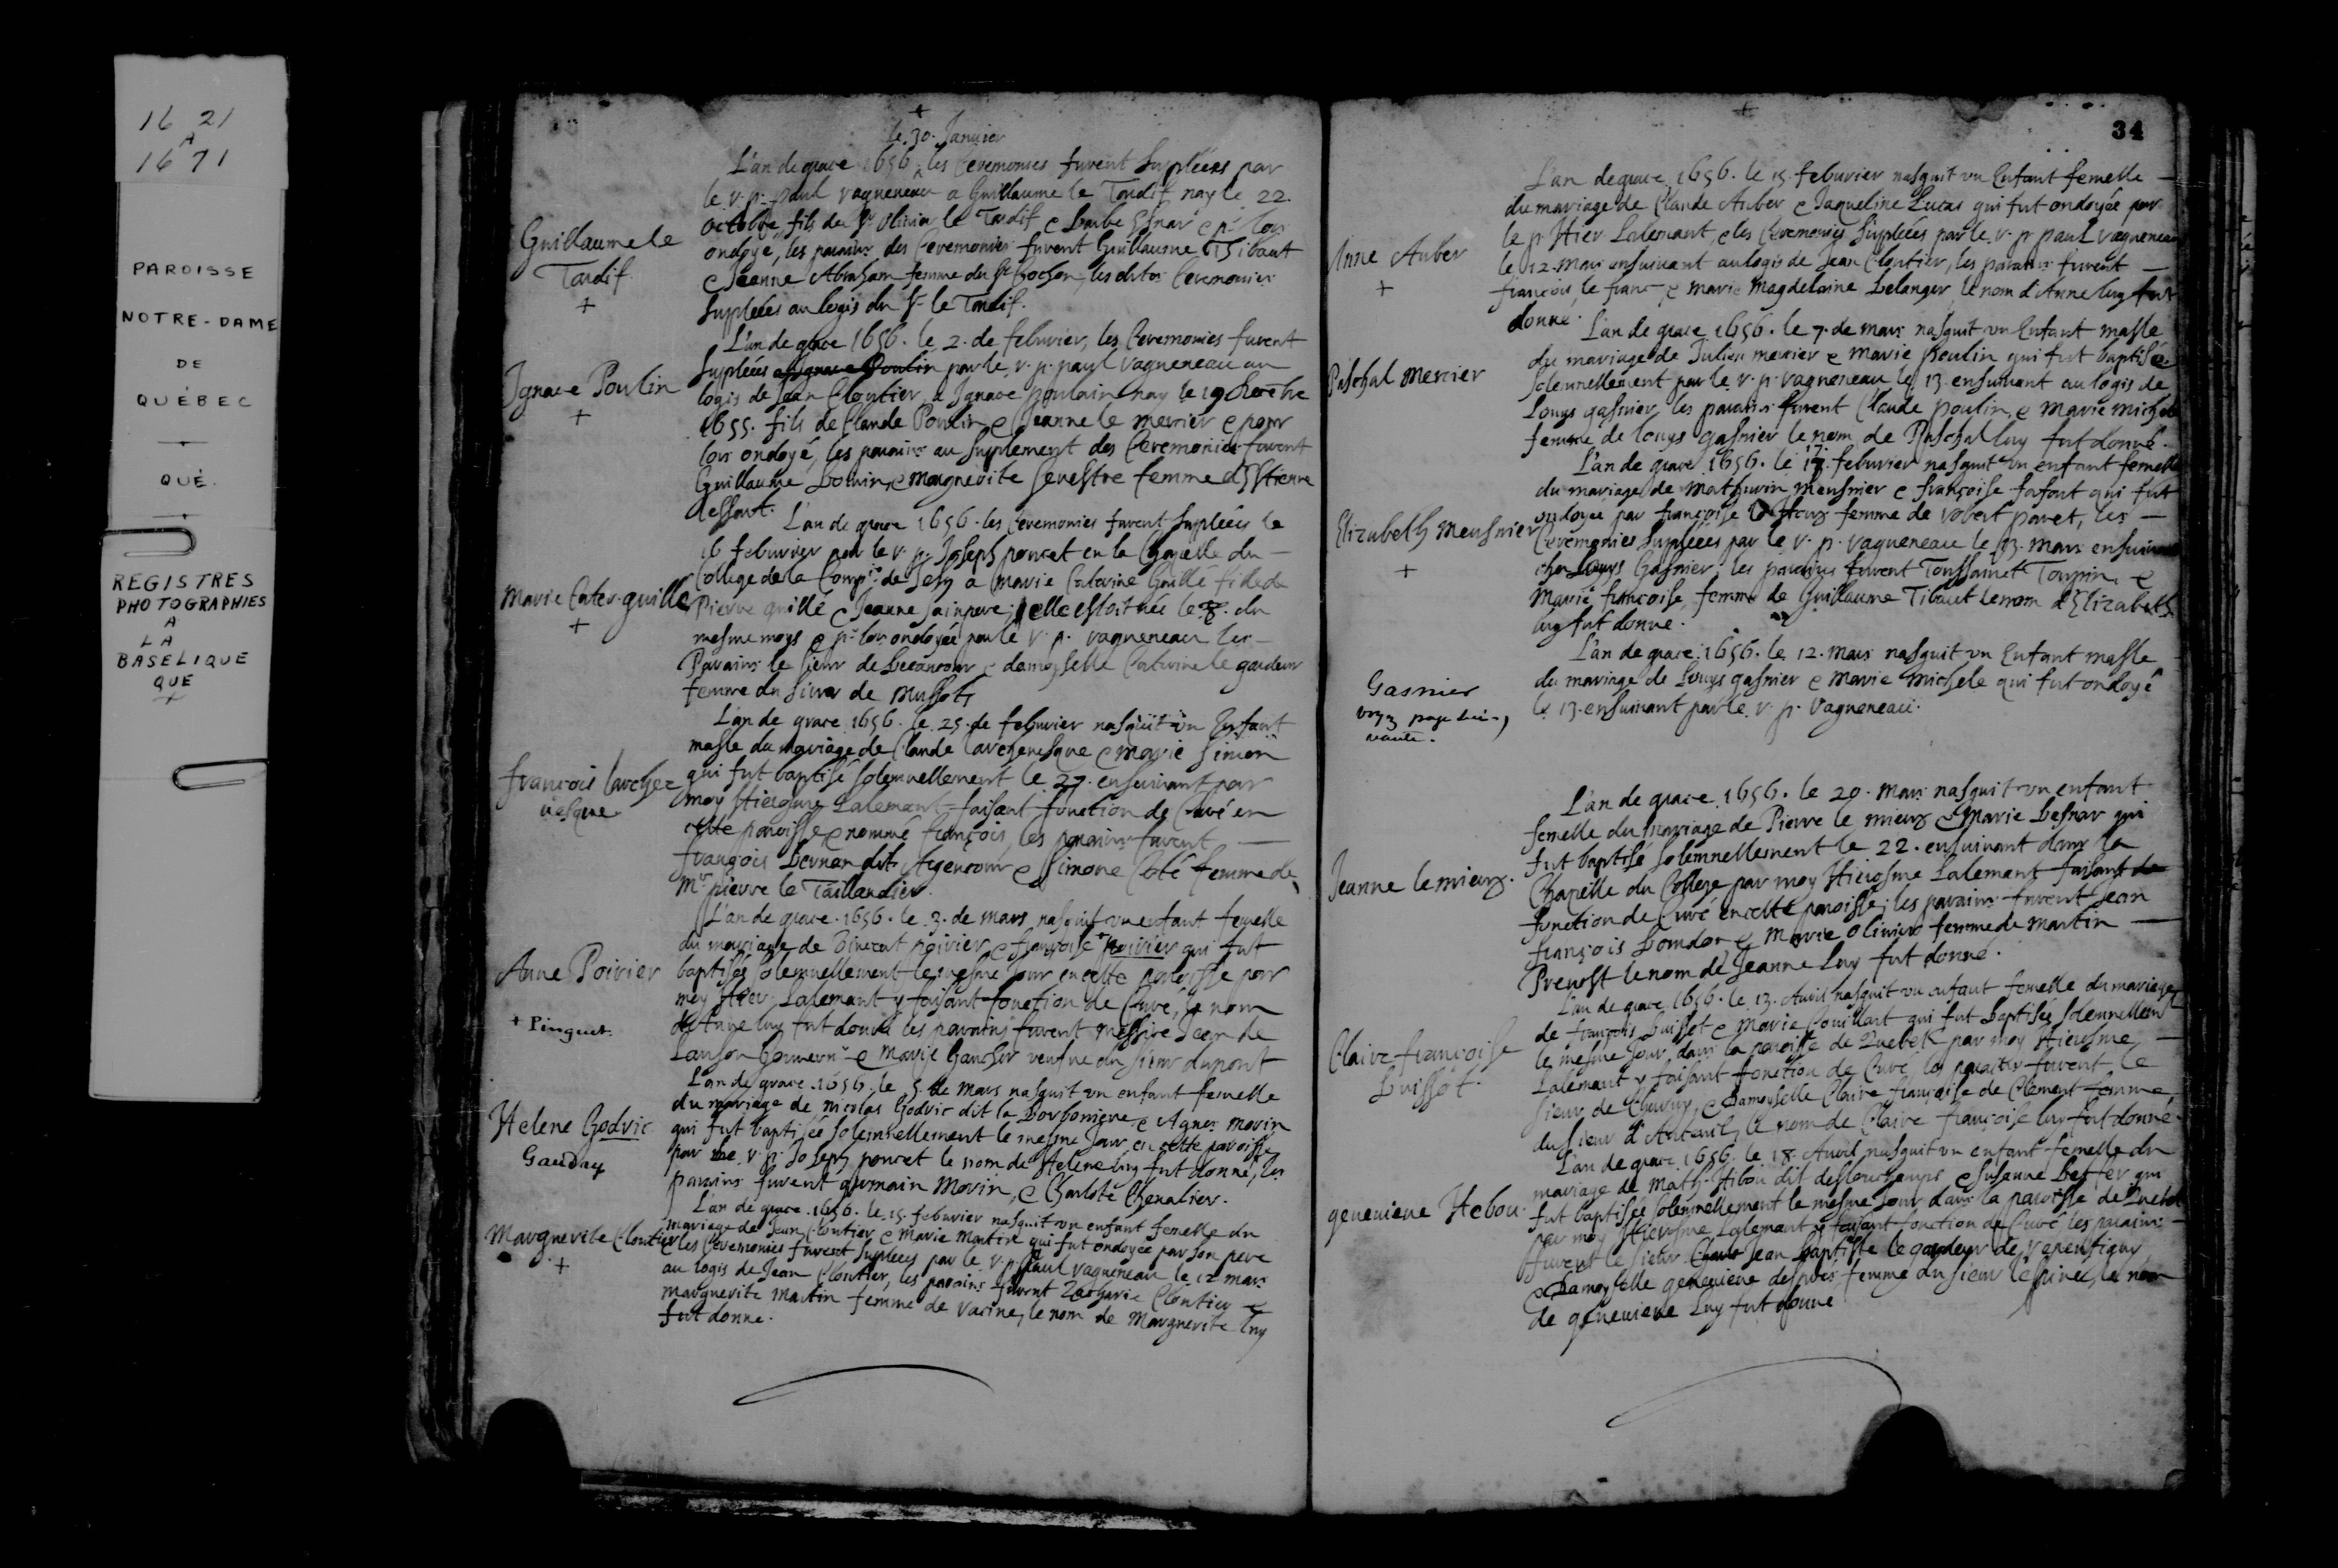 16 21
A
16 71
PAROISSE
NOTRE-DAME
DE
QUÉBEC
QUÉ.
REGISTRES
PHOTOGRAPHIES
A
LA
BASELIQUE
QUE
+
le 30. Janvier
L'an de grace 1656 les Ceremonies furent supléées par
le r. p. paul ragueneau a Guillaume le Tardif nay le 22.
octobre fils de Sr olivier le Tardif e barbe Esnar e pr lors
ondoyé, les parains des Ceremonies furent Guillaume Thibaut
e Jeanne Abraham femme du Sr les dites Ceremonies
supléées au logis du Sr le Tardif.
Guillaume le
Tardif
+
L'an de grace 1656. le 2. de febvrier, les Ceremonies furent
supléées par le r. p. paul ragueneau au
logis de Jean Cloutier, a Ignace poulain nay le 19
1655. fils de Claude Poulin e Jeanne le mercier e pour
lors ondoyé, les parains au suplement des Ceremonies furent
Guillaume e marguerite Senestre femme d'Estienne
dessart.
Ignace Poulin
+
L'an de grace 1656. les Ceremonies furent supléées le
16 febvrier par le r. p. Joseph poncet en la Chapelle du
College de la Compie de Jesus a Marie Caterine Guille fille de
Pierre guille e Jeanne sainpere; elle estoit née le 8. du
mesme moys e pr lors ondoyée par le r. p. ragueneau les
Parains le sieur de becancour e damoyselle Caterine le gardeur
femme du sieur de mussots
Marie Cater. guille
+
L'an de grace 1656. le 25. de febvrier nasquit un Enfant
masle du mariage de Claude larchevesque e marie simon
qui fut baptisé solemnellement le 27. ensuivant par
moy Hierosme Lalemant faisant fonction de Curé en
cette paroisse e nommé françois, les parains furent
françois bernar dit Argencour e Simone Coté femme de
Mr pierre le Taillandier.
françois larche
vesque
L'an de grace. 1656. le 3. de mars nasquit un enfant femelle
du mariage de vincent poirier e françoise poirier qui fut
baptisée solemnellement le mesme Jour en cette paroisse par
moy Hier. Lalemant y faisant fonction de Curé, le nom
d'Anne luy fut donné les parains furent messire Jean de
Lauson Gouvernr e Marie Gaucher veufve du sieur dupont
Anne Poirier
+ Pinguet.
L'an de grace 1656. le 5. de mars nasquit un enfant femelle
du mariage de nicolas Godvic dit la borboniere e Agnes morin
qui fut baptisée solemnellement le mesme Jour en cette paroisse
par le r. p. Joseph poncet le nom de Helene luy fut donné, les
parains furent germain Morin, e Charlote Chevalier.
Helene Godvic
Gaudry
L'an de grace 1656. le 15. febvrier nasquit un enfant femelle du
mariage de Jean Cloutier e Marie Martin qui fut ondoyée par son pere
e les Ceremonies furent suplees par le r. p. paul ragueneau le 12 mars
au logis de Jean Cloutier, les parains furent Zacharie Cloutier e
marguerite martin femme de racine, le nom de Marguerite luy
fut donné.
Marguerite Cloutier
+
34
L'an de grace 1656. le 15. febvrier nasquit un Enfant femelle
du mariage de Claude Auber e Jaqueline Lucas qui fut ondoyée par
le p. Hier Lalemant, e les Ceremonies supléées par le r. p. paul ragueneau
le 12. mars ensuivant au logis de Jean Cloutier, les parains furent
françois le franc e marie magdelaine belanger, le nom d'Anne luy fut
donné.
Anne Auber
+
L'an de grace 1656. le 7. de mars nasquit un Enfant masle
du mariage de Julien mercier e marie Poulin qui fut baptisé
solemnellement par le r. p. ragueneau le 13. ensuivant au logis de
Louys gasnier, les parains furent Claude poulin, e marie michele
femme de louys gasnier le nom de Paschal luy fut donné.
Paschal mercier
L'an de grace 1656. le 17. febvrier nasquit un enfant femelle
du mariage de mathurin meusnier e françoise fafart qui fut
ondoyée par françoise femme de robert paret, les
Ceremonies supléées par le r. p. ragueneau le 13. mars ensuivant
chez Louys Gasnier, les parains furent Toussainct Toupin, e
Marie françoise femme de Guillaume Tibaut le nom d'Elizabeth
luy fut donné.
Elizabeth meusnier
+
L'an de grace 1656. le 12. mars nasquit un Enfant masle
du mariage de Louys gasnier e marie michele qui fut ondoyé
le 13. ensuivant par le r. p. ragueneau.
Gasnier
voyez page sui-
vante.
L'an de grace 1656. le 20. mars nasquit un enfant
femelle du mariage de Pierre le mieux e Marie besnar qui
fut baptisé solemnellement le 22. ensuivant dans la
Chapelle du College par moy Hierosme Lalemant faisant
fonction de Curé en cette paroisse; les parains furent Jean
françois bourdon e Marie Olivier femme de martin
Prevost le nom de Jeanne luy fut donné.
Jeanne lemieux.
L'an de grace 1656. le 13. Avril nasquit un enfant femelle du mariage
de françois bissot e Marie Couillart qui fut baptisée solemnellemt
le mesme Jour, dans la paroisse de Quebek par moy Hierosme
Lalemant y faisant fonction de Curé les parains furent le
sieur de Charny, e Damoyselle Claire françoise de Clement femme
du sieur d'Auteuil, le nom de Claire françoise luy fut donné.
Claire françoise
bissot.
L'an de grace 1656. le 18. Avril nasquit un enfant femelle du
mariage de Math. Hibou dit deslonchamps e Susanne betfer qui
fut baptisée solemnellement le mesme Jour dans la paroisse de Quebek
par moy Hierosme Lalemant y faisant fonction de Curé les parains
furent le sieur Jean baptiste le gardeur de repentigny
e Damoyselle genevieve despres femme du sieur l'espinee, le nom
de genevieve luy fut donné
genevieve Hebou.